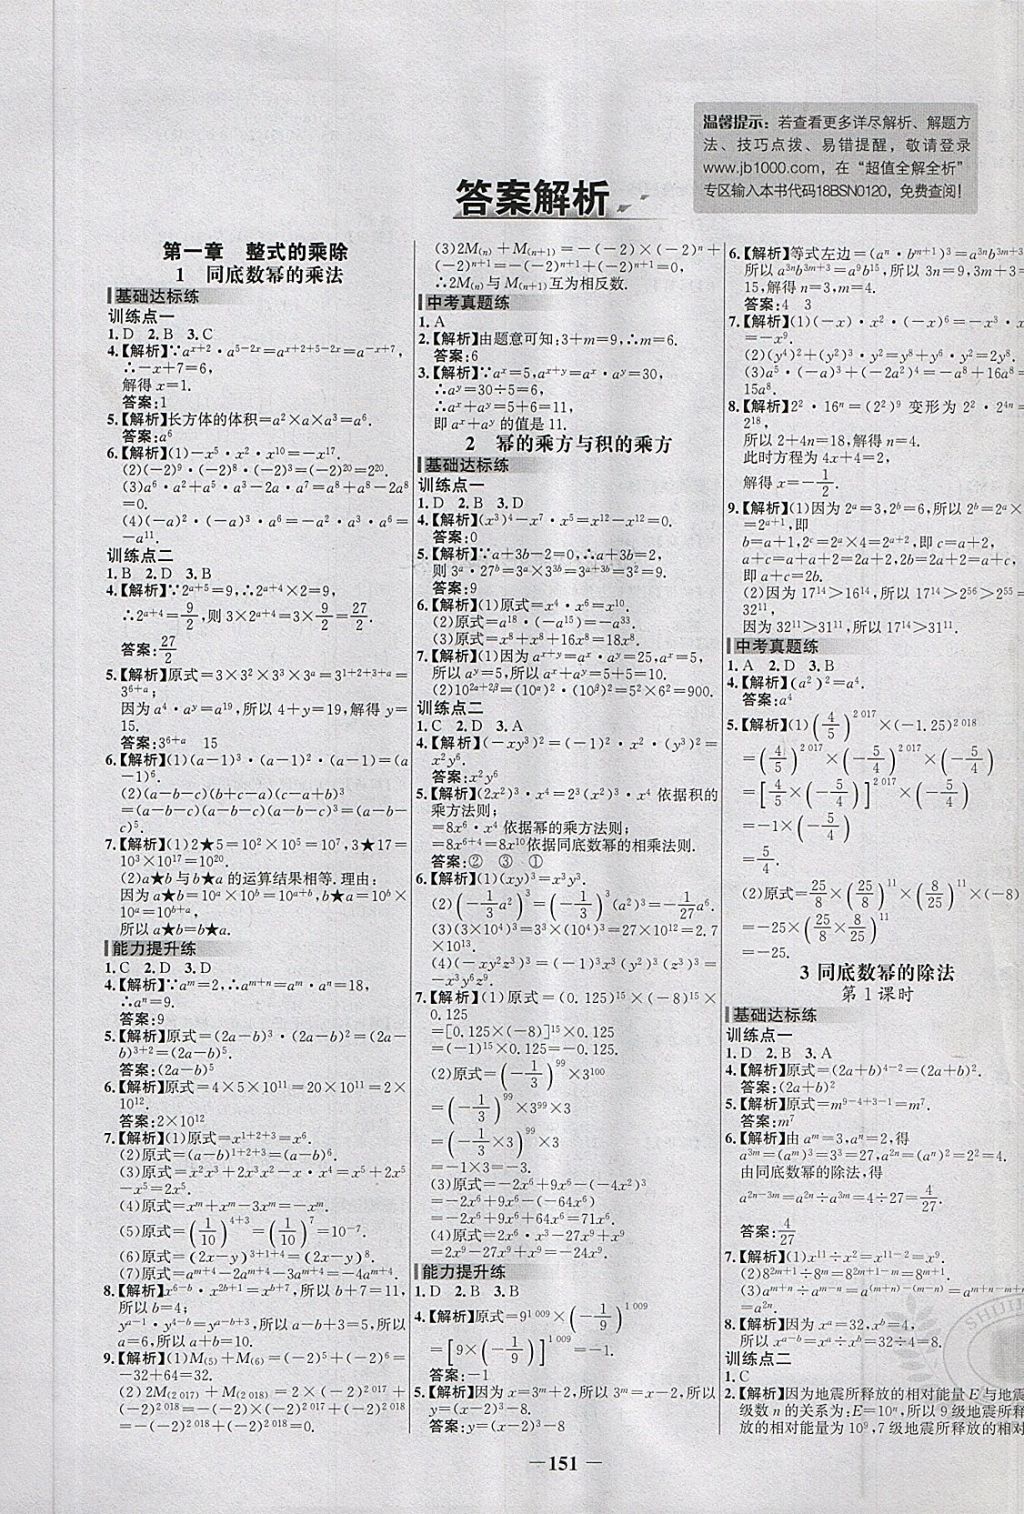 温馨提示：若查看更多详尽解析、解题方
法、技巧点拨、易错提醒，敬请登录
www.jb1000.com，在“超值全解全析”
专区输入本书代码18BSN0120，免费查阅！
答案解析
第一章　整式的乘除
1　同底数幂的乘法
基础达标练
训练点一
1.D  2.B  3.C
4.【解析】∵aˣ⁺²·a⁵⁻²ˣ=aˣ⁺²⁺⁵⁻²ˣ=a⁻ˣ⁺⁷,
∴-x+7=6,
解得x=1.
答案:1
5.【解析】长方体的体积=a²×a×a³=a⁶.
答案:a⁶
6.【解析】(1)-x⁵·x²·x¹⁰=-x¹⁷.
(2)(-2)⁹·(-2)⁸·(-2)³=(-2)²⁰=2²⁰.
(3)a⁶·a²+a⁵·a³-2a·a⁷=a⁸+a⁸-2a⁸
=0.
(4)(-a)²·(-a)³·a⁶=-a²·a³·a⁶=
-a¹¹.
训练点二
1.B  2.D  3.B
4.【解析】∵2ᵃ⁺⁵=9,∴2ᵃ⁺⁴×2=9,
∴2ᵃ⁺⁴=9/2,则3×2ᵃ⁺⁴=3×9/2=27/2.
答案:27/2
5.【解析】原式=3×3²×3³×3ᵃ=3¹⁺²⁺³⁺ᵃ=
3⁶⁺ᵃ;
因为a⁴·aʸ=a¹⁹,所以4+y=19,解得y=
15.
答案:3⁶⁺ᵃ　15
6.【解析】(1)(a-1)³·(a-1)²·(a-1)=(a
-1)⁶.
(2)(a-b-c)(b+c-a)(c-a+b)³
=(a-b-c)(a-b-c)(a-b-c)³=(a-b-
c)⁵.
7.【解析】(1)2★5=10²×10⁵=10⁷,3★17=
10³×10¹⁷=10²⁰.
(2)a★b与b★a的运算结果相等.理由:
因为a★b=10ᵃ×10ᵇ=10ᵃ⁺ᵇ,b★a=10ᵇ×
10ᵃ=10ᵇ⁺ᵃ,
所以a★b=b★a.
能力提升练
1.C  2.D  3.D
4.【解析】∵aᵐ=2,∴aᵐ⁺ⁿ=aᵐ·aⁿ=18,
∴aⁿ=9.
答案:9
5.【解析】原式=(2a-b)³·(2a-b)²=(2a-
b)³⁺²=(2a-b)⁵.
答案:(2a-b)⁵
6.【解析】原式=4×5×10¹¹=20×10¹¹=2×
10¹².
答案:2×10¹²
7.【解析】(1)原式=x¹⁺²⁺³=x⁶.
(2)原式=(a-b)¹⁺²⁺³=(a-b)⁶.
(3)原式=x²x³+2x³x²-x⁵=x⁵+2x⁵
-x⁵=2x⁵.
(4)原式=xᵐ+xᵐ-3xᵐ=-xᵐ.
(5)原式=(1/10)⁴⁺³=(1/10)⁷=10⁻⁷.
(6)原式=(2x-y)³⁺¹⁺⁴=(2x-y)⁸.
(7)原式=aᵐ⁺⁴-2aᵐ⁺⁴-3aᵐ⁺⁴=-4aᵐ⁺⁴.
8.【解析】x⁶⁻ᵇ·x²ᵇ⁺¹=xᵇ⁺⁷,所以b+7=11,
所以b=4;
yᵃ⁻¹·y⁴⁻ᵇ=yᵃ⁻ᵇ⁺³,所以a-b+3=5,所以
a=6,所以a+b=10.
9.【解析】(1)M₍₅₎+M₍₆₎=(-2)⁵+(-2)⁶=
-32+64=32.
(2)2M₍₂₀₁₇₎+M₍₂₀₁₈₎=2×(-2)²⁰¹⁷+
(-2)²⁰¹⁸=-(-2)×(-2)²⁰¹⁷+(-2)²⁰¹⁸
=-(-2)²⁰¹⁸+(-2)²⁰¹⁸=0.
(3)2M₍ₙ₎+M₍ₙ₊₁₎=-(-2)×(-2)ⁿ+
(-2)ⁿ⁺¹=-(-2)ⁿ⁺¹+(-2)ⁿ⁺¹=0,
∴2M₍ₙ₎与M₍ₙ₊₁₎互为相反数.
中考真题练
1.A
2.【解析】由题意可知:3+m=9,∴m=6.
答案:6
3.【解析】∵aˣ=5,aˣ⁺ʸ=aˣ·aʸ=30,
∴aʸ=30÷5=6,
∴aˣ+aʸ=5+6=11,
即aˣ+aʸ的值是11.
2　幂的乘方与积的乘方
基础达标练
训练点一
1.D  2.B  3.D
4.【解析】(x³)⁴-x⁷·x⁵=x¹²-x¹²=0.
答案:0
5.【解析】∵a+3b-2=0,∴a+3b=2,
则3ᵃ·27ᵇ=3ᵃ×3³ᵇ=3ᵃ⁺³ᵇ=3²=9.
答案:9
6.【解析】(1)原式=x⁴·x⁶=x¹⁰.
(2)原式=a¹⁸·(-a¹⁵)=-a³³.
(3)原式=x⁸+x⁸+16x⁸=18x⁸.
7.【解析】(1)因为aˣ⁺ʸ=aˣ·aʸ=25,aˣ=5,
所以aʸ=5,所以aˣ+aʸ=5+5=10.
(2)10²ᵅ⁺²ᵝ=(10ᵅ)²·(10ᵝ)²=5²×6²=900.
训练点二
1.C  2.D  3.A
4.【解析】(-xy³)²=(-1)²·x²·(y³)²=
x²y⁶.
答案:x²y⁶
5.【解析】(2x²)³·x⁴=2³(x²)³·x⁴ 依据积的
乘方法则;
=8x⁶·x⁴ 依据幂的乘方法则;
=8x⁶⁺⁴=8x¹⁰依据同底数幂的相乘法则.
答案:②　③　①
6.【解析】(1)(xy)³=x³y³.
(2)(-1/3a²)³=(-1/3)³(a²)³=-1/27a⁶.
(3)(3×10⁴)³=3³×(10⁴)³=27×10¹²=2.7
×10¹³.
(4)(-xy²z³)³=(-1)³x³(y²)³(z³)³=
-x³y⁶z⁹.
7.【解析】(1)原式=(0.125)¹⁵×(-8)¹⁵×
0.125
=[0.125×(-8)]¹⁵×0.125
=(-1)¹⁵×0.125=-0.125.
(2)原式=(-1/3)⁹⁹×3¹⁰⁰
=(-1/3)⁹⁹×3⁹⁹×3
=(-1/3×3)⁹⁹×3
=-1×3=-3.
(3)原式=-2x⁶+9x⁶-(-4x²)³
=-2x⁶+9x⁶-(-64x⁶)
=-2x⁶+9x⁶+64x⁶=71x⁶.
(4)原式=2x⁶·x³-27x⁹+x⁹
=2x⁹-27x⁹+x⁹=-24x⁹.
能力提升练
1.D  2.B  3.B
4.【解析】原式=9¹⁰⁰⁹×(-1/9)¹⁰⁰⁹
=[9×(-1/9)]¹⁰⁰⁹=-1.
答案:-1
5.【解析】因为x=3ᵐ+2,所以3ᵐ=x-2,所以
y=(x-2)³-8.
答案:y=(x-2)³-8
6.【解析】等式左边=(aⁿ·bᵐ⁺¹)³=a³ⁿb³ᵐ⁺³
所以a³ⁿb³ᵐ⁺³=a⁹b¹⁵,所以3n=9,3m+3=
15,解得n=3,m=4.
答案:4　3
7.【解析】(1)(-x)·x²·(-x)⁶=-x³·x⁶
=-x⁹.
(2)(y⁴)²+(y²)³·y²=y⁸+y⁶·y²=2y⁸.
(3)a⁵·(-a)³+(-2a²)⁴=-a⁸+16a⁸=
15a⁸.
8.【解析】2²·16ⁿ=(2²)⁹变形为2²·2⁴ⁿ=
2¹⁸,
所以2+4n=18,解得n=4.
此时方程为4x+4=2,
解得x=-1/2.
9.【解析】(1)因为2ᵃ=3,2ᵇ=6,所以2ᵇ=2ᵃ×
=2ᵃ⁺¹,即
b=a+1,2ᶜ=2ᵃ×4=2ᵃ⁺²,即c=a+2,
a+c=a+a+2=2a+2,2b=2a+2=a+c,
即a+c=2b.
(2)因为17¹⁴>16¹⁴,所以17¹⁴>2⁵⁶>2⁵⁵=
32¹¹,
因为32¹¹>31¹¹,所以17¹⁴>31¹¹.
中考真题练
1.A  2.D  3.B
4.【解析】(a²)²=a⁴.
答案:a⁴
5.【解析】(1)(4/5)²⁰¹⁷×(-1.25)²⁰¹⁸
=(4/5)²⁰¹⁷×(-5/4)²⁰¹⁷×(-5/4)
=[4/5×(-5/4)]²⁰¹⁷×(-5/4)
=-1×(-5/4)
=5/4.
(2)原式=25/8×(25/8)¹¹×(8/25)¹¹×(-8)
=-25×(25/8×8/25)¹¹
=-25.
3 同底数幂的除法
第1课时
基础达标练
训练点一
1.D  2.B  3.A
4.【解析】原式=(2a+b)⁴⁻²=(2a+b)².
答案:(2a+b)²
5.【解析】原式=m⁹⁻⁴⁺³⁻¹=m⁷.
答案:m⁷
6.【解析】由aᵐ=3,aⁿ=2,得
a³ᵐ=(aᵐ)³=3³=27,a²ⁿ=(aⁿ)²=2²=4.
由同底数幂的除法,得
a²ⁿ⁻³ᵐ=a²ⁿ÷a³ᵐ=4÷27=4/27.
答案:4/27
7.【解析】(1)x¹¹÷x²=x¹¹⁻²=x⁹.
(2)8²ᵐ⁺¹÷8ᵐ=8²ᵐ⁺¹⁻ᵐ=8ᵐ⁺¹.
(3)aᵐ⁺ⁿ÷aᵐ⁻ⁿ=a⁽ᵐ⁺ⁿ⁾⁻⁽ᵐ⁻ⁿ⁾=aᵐ⁺ⁿ⁻ᵐ⁺ⁿ
=a²ⁿ.
8.【解析】因为xᵃ=32,xᵇ=4,
所以xᵃ⁻ᵇ=xᵃ÷xᵇ=32÷4=8.
训练点二
1.C
2.【解析】因为地震所释放的相对能量E与地震
级数n的关系为:E=10ⁿ,所以9级地震所释
放的相对能量为10⁹,7级地震所释放的相对
—151—